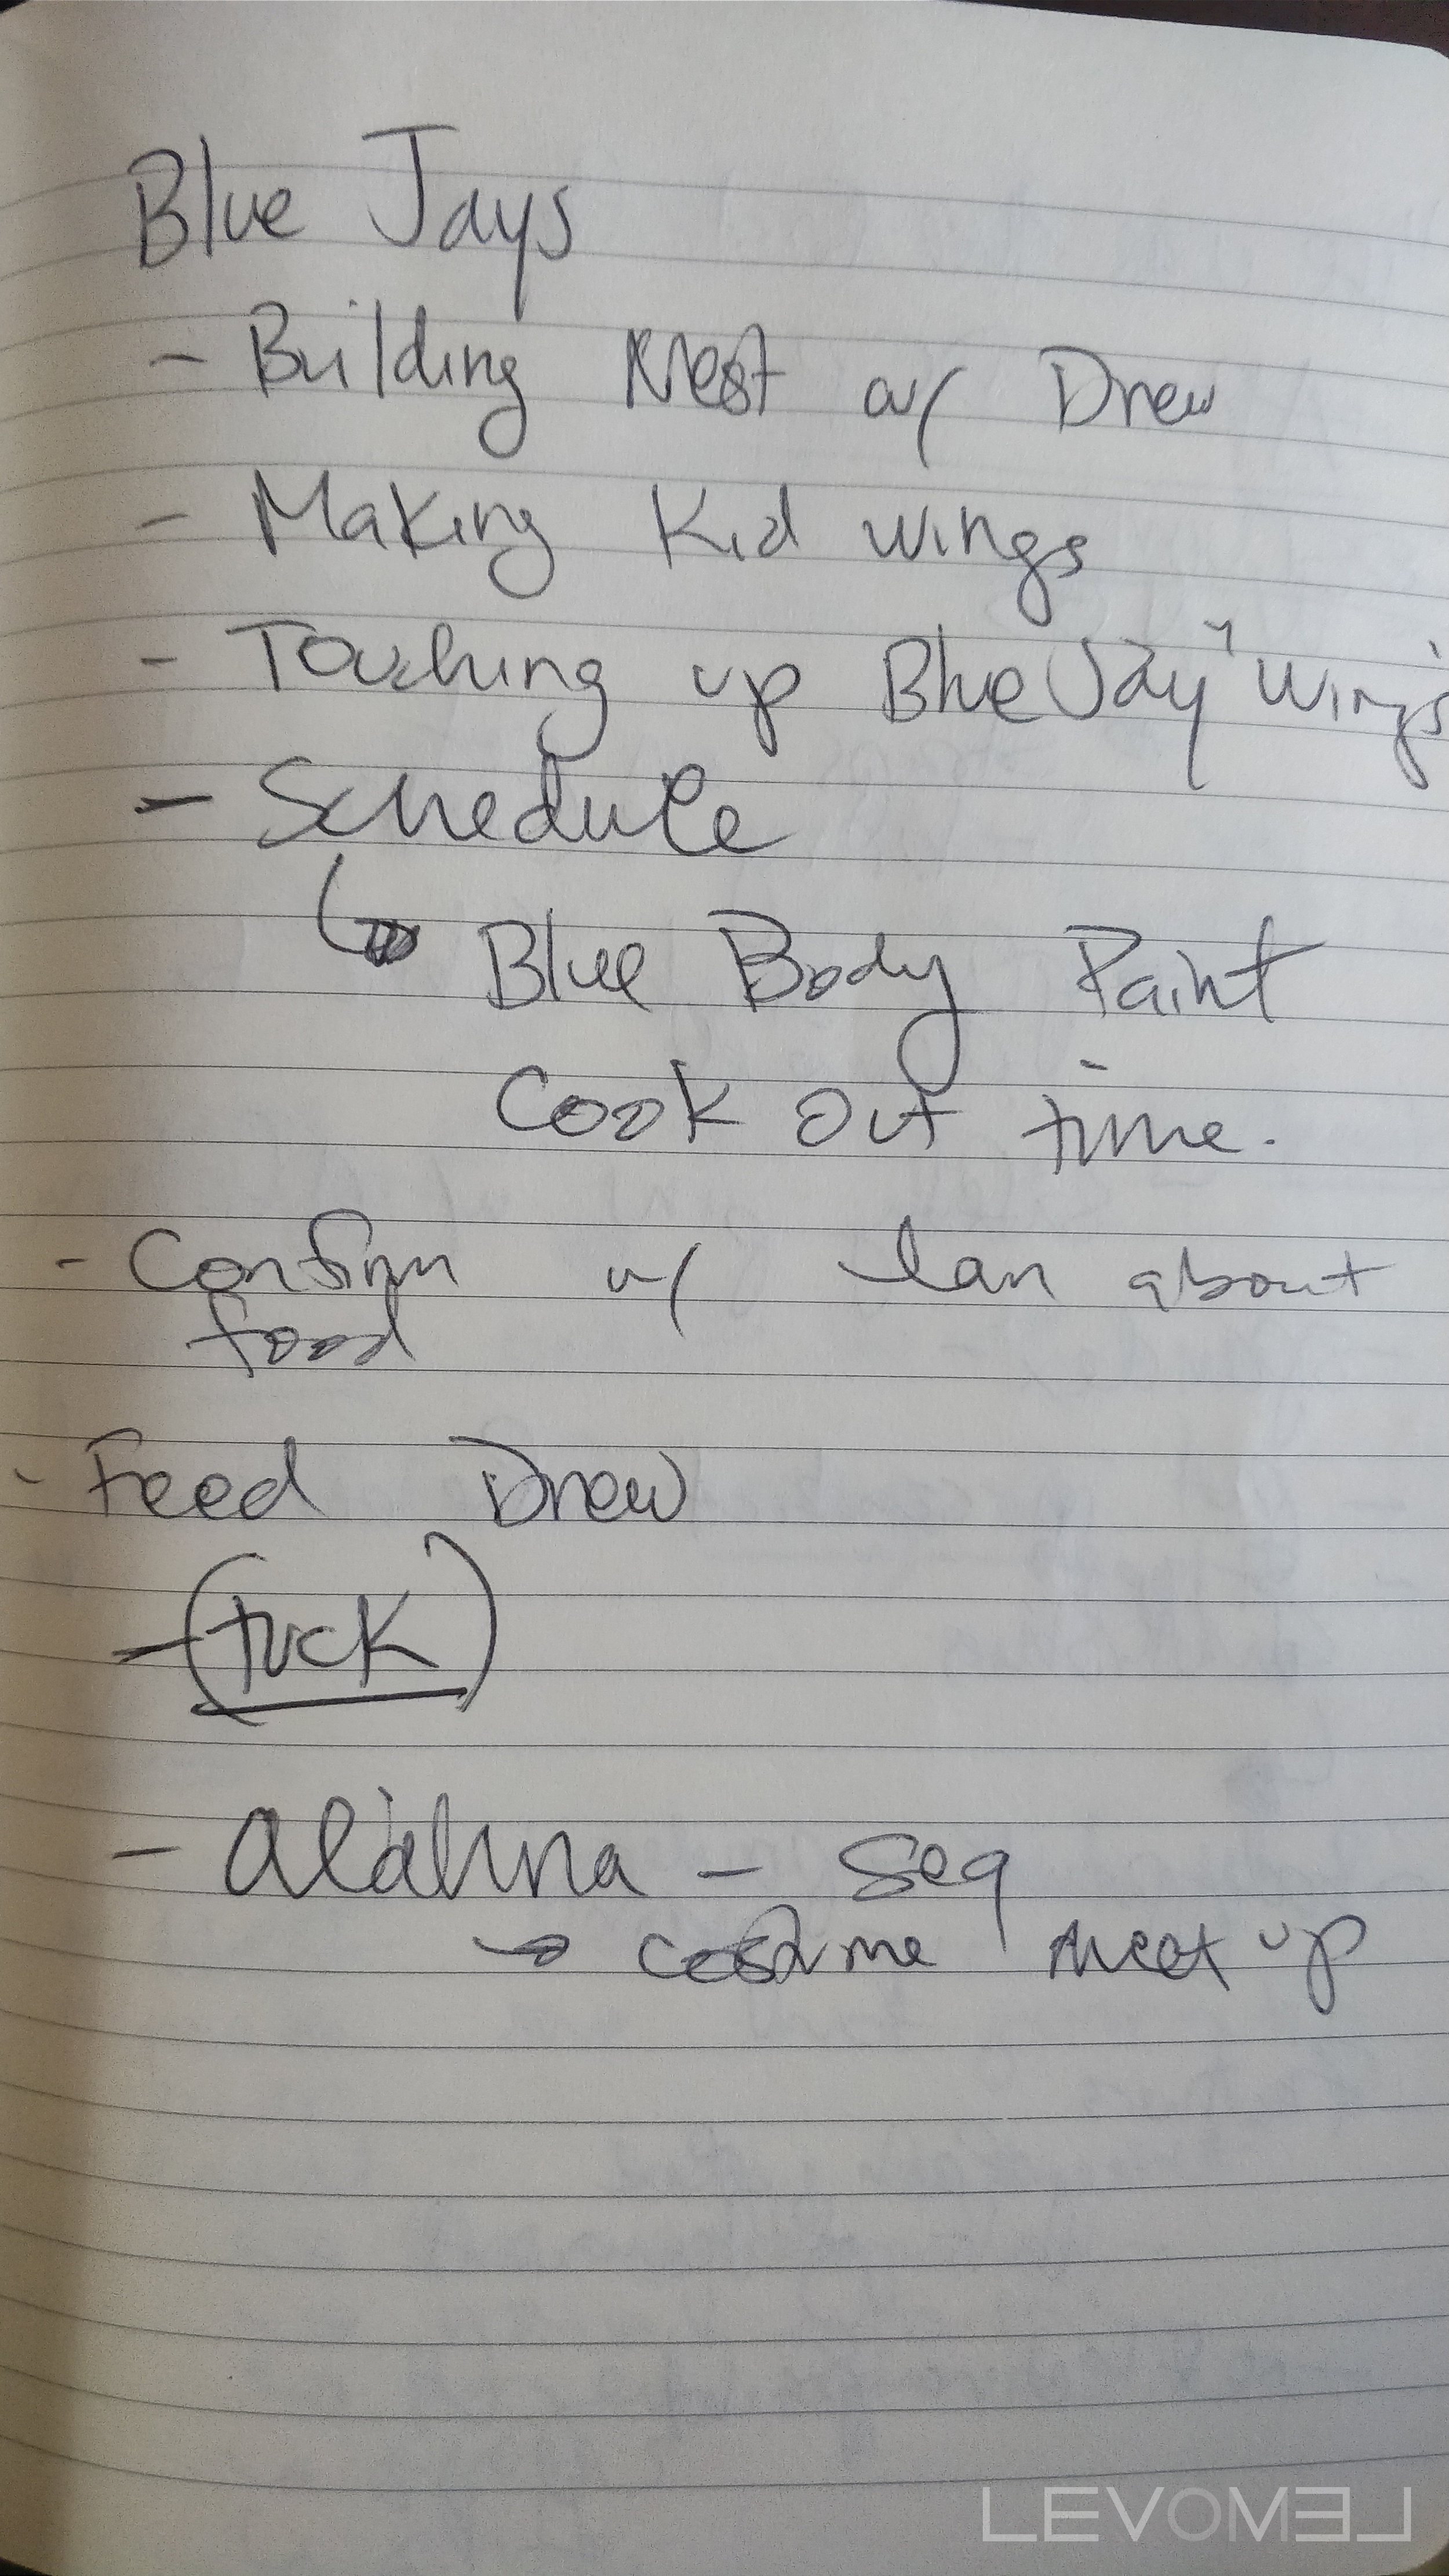 Blue Jays
- Building Nest w/ Drew
- Making Kid wings
- Touching up Blue Jay wings
- Schedule
↳ Blue Body Paint
Cook out time.
- Confirm w/ Ian about
food
- Feed Drew
- (tuck)
- Alahna - seq
→ costume meet up
LEVOMEL